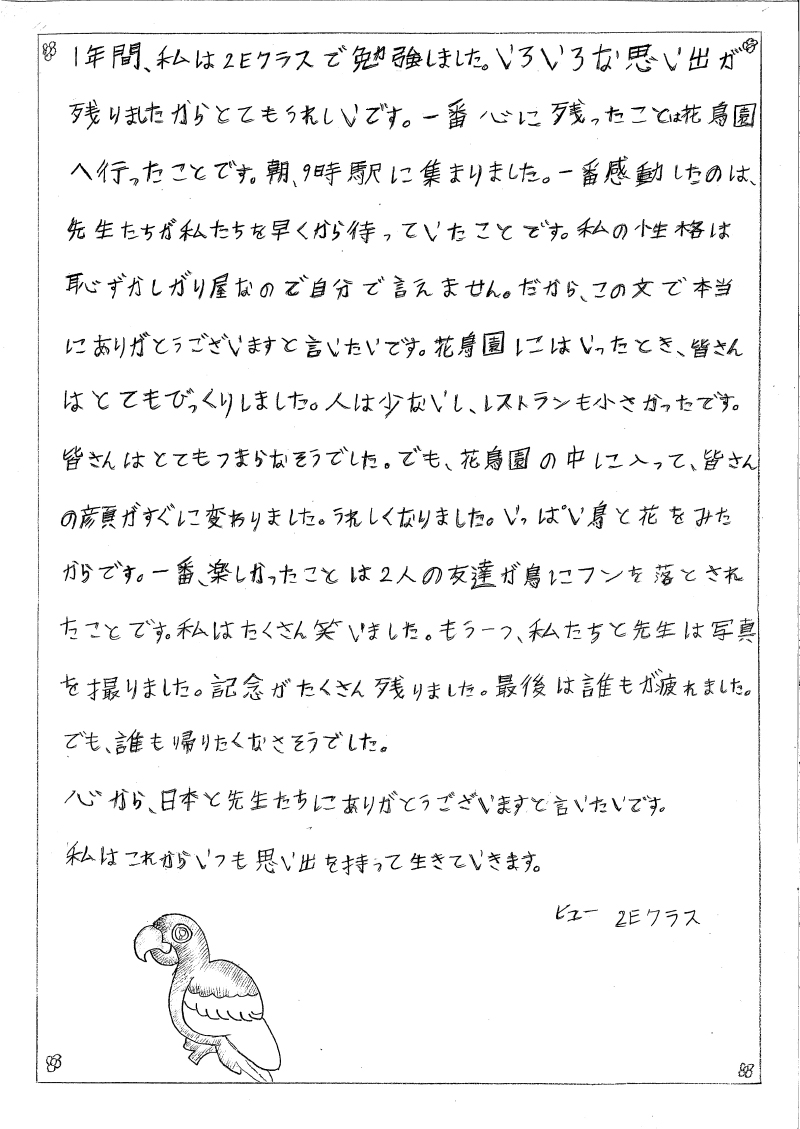 1年間、私は2Eクラスで勉強しました。いろいろな思い出が
残りましたからとてもうれしいです。一番心に残ったことは花鳥園
へ行ったことです。朝、9時駅に集まりました。一番感動したのは、
先生たちが私たちを早くから待っていたことです。私の性格は
恥ずかしがり屋なので自分で言えません。だから、この文で本当
にありがとうございますと言いたいです。花鳥園にはいったとき、皆さん
はとてもびっくりしました。人は少ないし、レストランも小さかったです。
皆さんはとてもつまらなそうでした。でも、花鳥園の中に入って、皆さん
の顔がすぐに変わりました。うれしくなりました。いっぱい鳥と花をみた
からです。一番、楽しかったことは2人の友達が鳥にフンを落とされ
たことです。私はたくさん笑いました。もう一つ、私たちと先生は写真
を撮りました。記念がたくさん残りました。最後は誰もが疲れました。
でも、誰も帰りたくなさそうでした。
心から、日本と先生たちにありがとうございますと言いたいです。
私はこれからいつも思い出を持って生きていきます。
ヒュー 2Eクラス